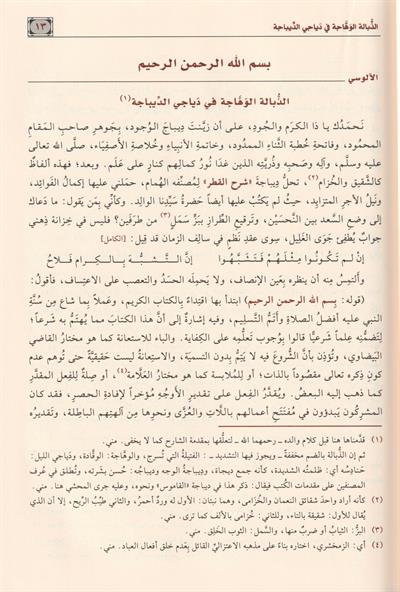 الذُّبالة الوَهَّاجة في دَياجي الدِّيباجة
١٣
بسم الله الرحمن الرحيم
الألوسي
الذُّبالة الوَهَّاجة في دَياجي الدِّيباجة(١)
نَحمَدُك يا ذا الكرَم والجُودِ، على أن زيَّنتَ دِيباجَ الوُجود، بِجَوهرِ صاحبِ المَقامِ
المحمُود، وفاتحةِ خُطبة الثَّناءِ الممدُود، وخاتمةِ الأنبِياءِ وخُلاصةِ الأصفِيَاء، صلَّى الله تعالى
عليه وسلَّم، وآلِه وصَحبِه وذُريَّتِه الذين غدَا نُور كمالِهم كنارٍ على عَلَم. وبعد؛ فهذه ألفاظٌ
كالشَّقيق والخُزام(٢)، تحلُّ دِيباجةَ «شرح القطر» لِمُصنِّفه الهُمام، حمَلَني عليها إكمالُ الفَوائد،
ونَيلُ الأجرِ المتزايِد، حيثُ لم يَكتُب عليها أيضاً حَضرةُ سيِّدِنا الوالِد. وكأنِّي بمَن يقول: ما دَعاك
إلى وضعِ السَّعد بين النَّحسَيْن، وتَرقيعِ الطِّرازِ بِبَزِّ سَمَلٍ(٣) من طرَفَين؟ فليس في خِزانة ذِهني
جوابٌ يُطفِئ جَوَى الغَليل، سِوى عقدِ نَظمٍ في سالِف الزمان قد قِيل: [الكامل]
إنْ لــم تَـكُـونُـوا مِـثـلَـهُـمْ فَـتَـشـبَّـهُـوا إنَّ الـتَّـشـبُّـهَ بِـالــكِــرامِ فَـلاحُ
وألتمِسُ منه أن ينظرَه بعين الإنصاف، ولا يَحمِلَه الحسَدُ والتعصب على الاعتِساف، فأقولُ:
(قوله: بِسمِ الله الرحمن الرحيمِ) ابتدأ بها اقتِداءً بالكتاب الكريم، وعَمَلاً بِما شاع مِن سُنَّةِ
النبي عليه أفضلُ الصلاةِ وأتَمُّ التَّسلِيم، وفيه إشارةٌ إلى أنَّ هذا الكتابَ مما يُهتَمُّ به شَرعاً؛
لِتَضمُّنِه عِلماً شَرعيًّا قالوا بوُجوب تَعلُّمِه على الكِفاية. والباء للاستعانة كما هو مختارُ القاضي
البَيضاوي، وتُؤذِن بأنَّ الشُّروعَ فيه لا يَتِمُّ بدون التسمِيَة، والاستِعانةُ ليست حَقيقيَّةً حتى تُوهم عدم
كونِ ذِكره تعالى مقصوداً بالذات؛ أو للمُلابسة كما هو مختارُ العَلَّامة(٤)، أو صِلةٌ لِلفِعل المقدَّرِ
كما ذهب إليه البعضُ. ويُقدَّرُ الفِعل على تقديرِ الأوجُهِ مُؤخراً لإفادةِ الحصر، فقد كان
المشرِكُون يَبدؤون في مُفتَتَحِ أعمالهم باللَّاتِ والعُزَّى ونحوِها مِن آلهتِهم الباطِلة، وتقديرُه
(١) قدَّمناها هنا قبل كلام والده ـ رحمهما الله ـ لتعلُّقها بمقدمة الشارح كما لا يخفى. مني.
ثم إن الذُّبالة بالضم مخففةً ـ ويجوز فيها التشديد ـ : الفتيلةُ التي تُسرج، والوهاجة: الوقَّادة، ودَياجي الليل:
حَنادِسه أي: ظلمتُه الشديدة، كأنه جمع ديجاة، ودِيباجةُ الوجه وديباجُه: حُسن بشَرتِه، وتُطلق في عُرف
المصنفين على مقدمات الكُتب فيقال: ذكر هذا في ديباجة «القاموس» ونحوه، وعليه جرى المحشي هنا. مني.
(٢) كأنه أراد واحدَ شقائق النعمان والخُزامَى، وهما نبتان: الأول له وردٌ أحمرُ، والثاني طيِّبُ الرِّيح، إلا أن الذي
يقال للأول: شقيقة بالتاء، وللثاني: خُزامى بالألف كما ترى. مني.
(٣) البزُّ: الثيابُ أو ضربٌ منها، والسَّمل: الثوب الخَلِق. مني.
(٤) أي: الزمخشري، اختاره بناءً على مذهبه الاعتزاليِّ القائل بعدم خلق أفعال العباد. مني.